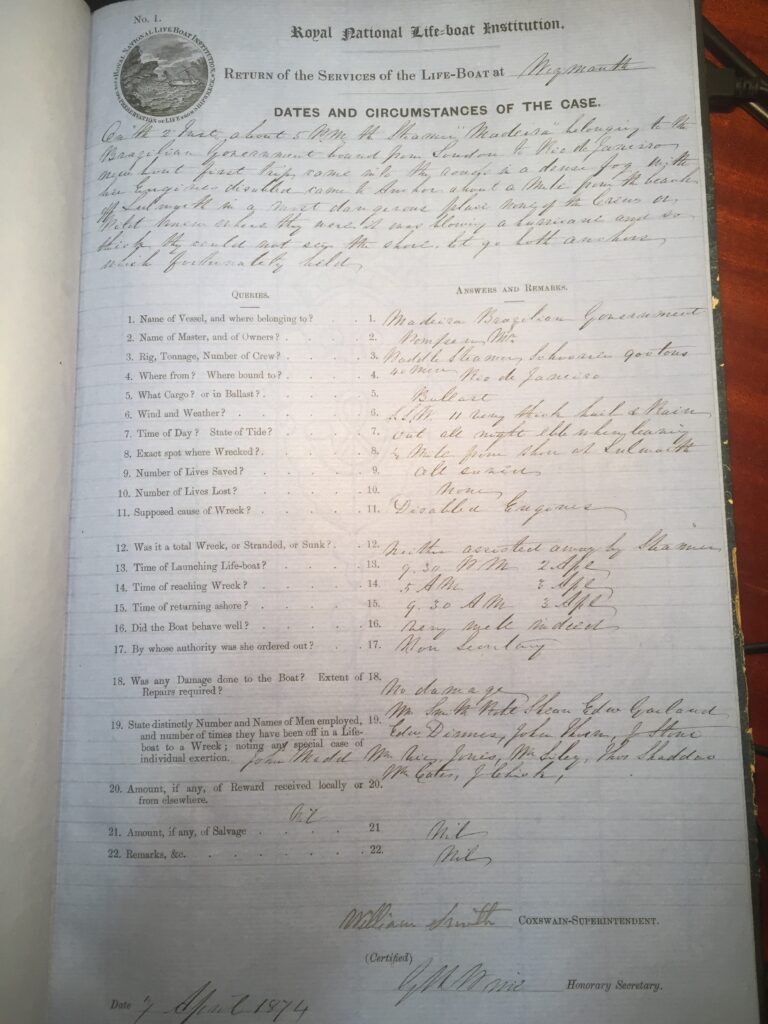 No. 1.
ROYAL NATIONAL LIFE BOAT INSTITUTION
Royal National Life-boat Institution.
Return of the Services of the Life-Boat at Weymouth
DATES AND CIRCUMSTANCES OF THE CASE.
On the 2 Inst, about 5 P.M. the Steamer "Madeira" belonging to the
Brazilian Government bound from London to Rio de Janeiro
new boat first trip, came into the in a dense fog with
her Engines disabled came to Anchor about a Mile from the beach
off Lulworth in a most dangerous place none of the Crew or
Pilot knew where they were it was blowing a hurricane and so
thick they could not see the shore. let go both anchors
which fortunately held
Queries.
Answers and Remarks.
1. Name of Vessel, and where belonging to? 1. Madeira Brazilian Government
2. Name of Master, and of Owners? 2.
3. Rig, Tonnage, Number of Crew? 3. Paddle Steamer Schooner 900 tons
4. Where from? Where bound to? 4. 40 men Rio de Janeiro
5. What Cargo? or in Ballast? 5. Ballast
6. Wind and Weather? 6. S.S.W. 11 very thick hail & Rain
7. Time of Day? State of Tide? 7. out all night ebb when leaving
8. Exact spot where Wrecked? 8. ½ Mile from shore at Lulworth
9. Number of Lives Saved? 9. all saved
10. Number of Lives Lost? 10. None
11. Supposed cause of Wreck? 11. Disabled Engines
12. Was it a total Wreck, or Stranded, or Sunk? 12. neither assisted away by Steamer
13. Time of Launching Life-boat? 13. 9.30 P.M. 2 Apl
14. Time of reaching Wreck? 14. 5 A M. 3 Apl
15. Time of returning ashore? 15. 9.30 A M. 3 Apl
16. Did the Boat behave well? 16. very well indeed
17. By whose authority was she ordered out? 17. Hon Secretary
18. Was any Damage done to the Boat? Extent of 18.
Repairs required? No damage
19. State distinctly Number and Names of Men employed, 19. Wm Smith Robt Edw Garland
and number of times they have been off in a Life- Edw John J Stone
boat to a Wreck; noting any special case of
individual exertion. John Wm Jones, Wm Thos
Wm J
20. Amount, if any, of Reward received locally or 20.
from elsewhere.
Nil
21. Amount, if any, of Salvage 21 Nil
22. Remarks, &c. 22. Nil
William Smith Coxswain-Superintendent.
(Certified)
Honorary Secretary.
Date 7 April 1874